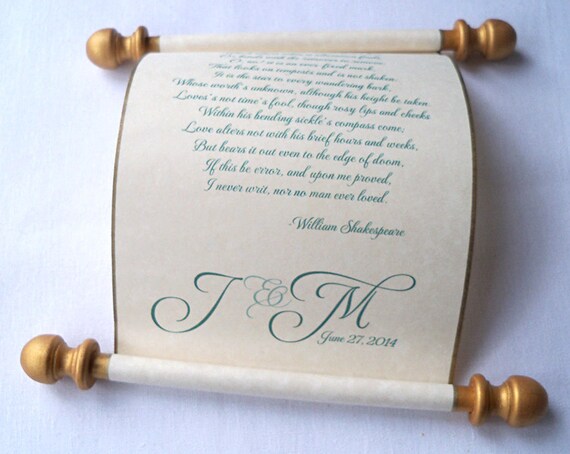 Or bends with the remover to remove.
O, no! it is an ever fixed mark,
That looks on tempests and is not shaken;
It is the star to every wandering bark,
Whose worth's unknown, although his height be taken.
Loves's not time's fool, though rosy lips and cheeks
Within his bending sickle's compass come;
Love alters not with his brief hours and weeks,
But bears it out even to the edge of doom.
If this be error, and upon me proved,
I never writ, nor no man ever loved.
-William Shakespeare
J & M
June 27, 2014